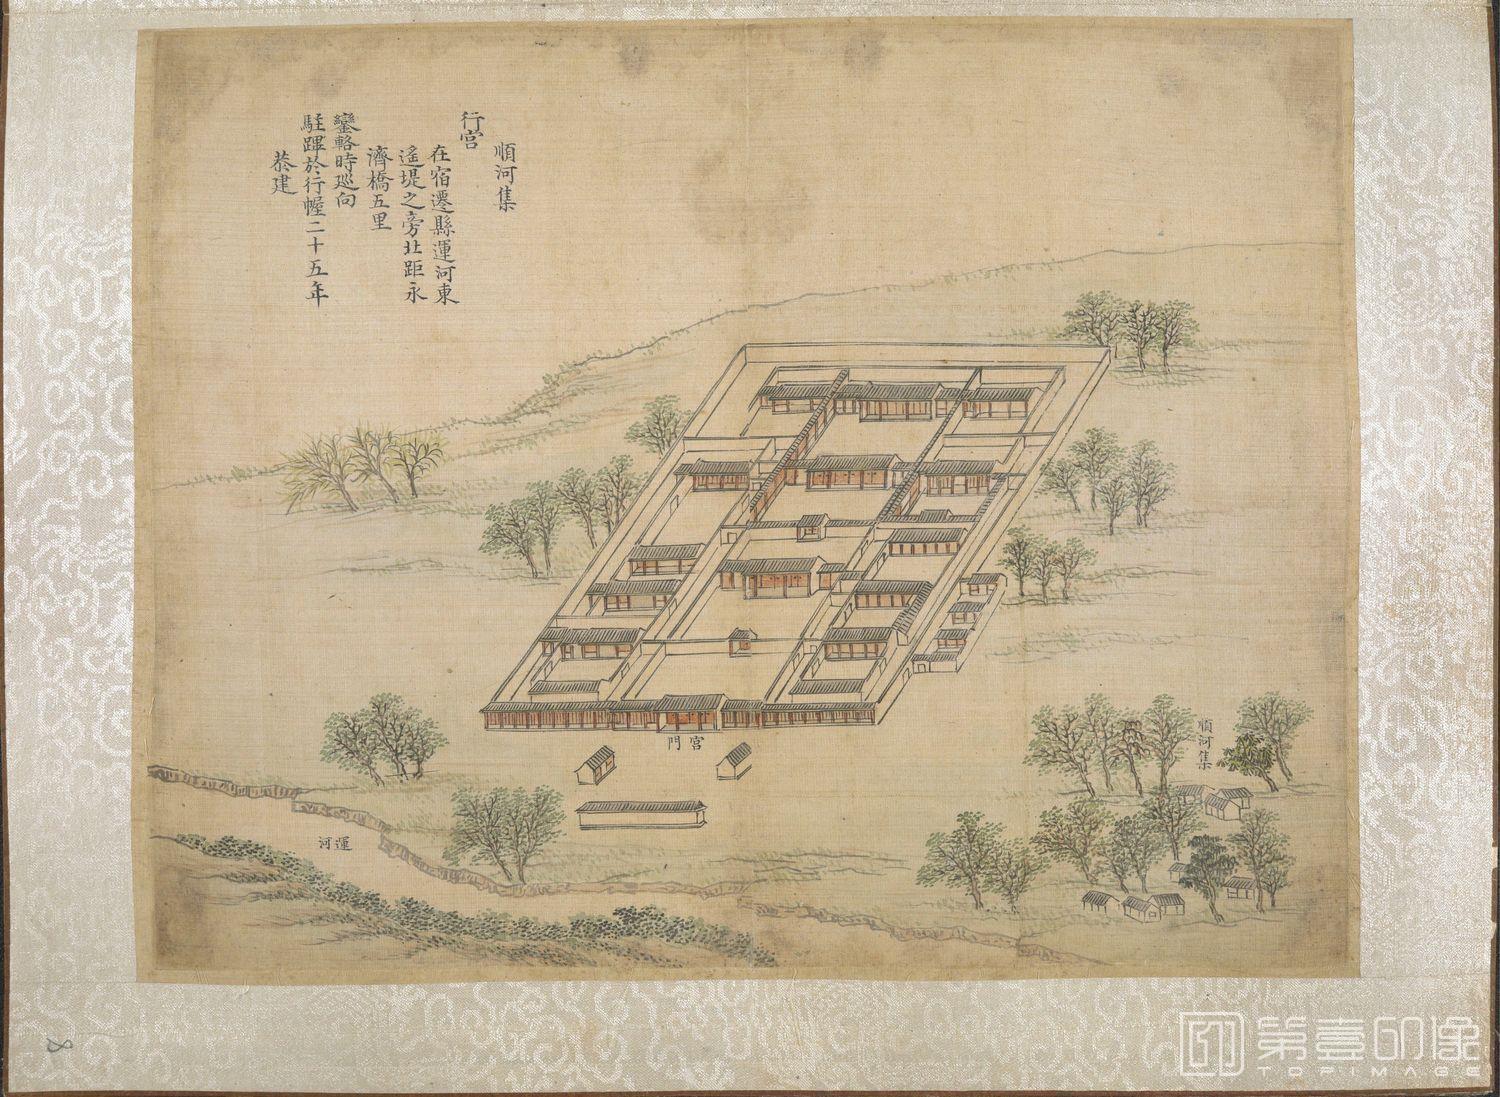 順河集
行宮
在宿遷縣運河東
遙堤之旁北距永
濟橋五里
鑾輅時巡向
駐蹕於行幄二十五年
恭建
宮門
順河集
運河
8
第壹印像
TOPIMAGE